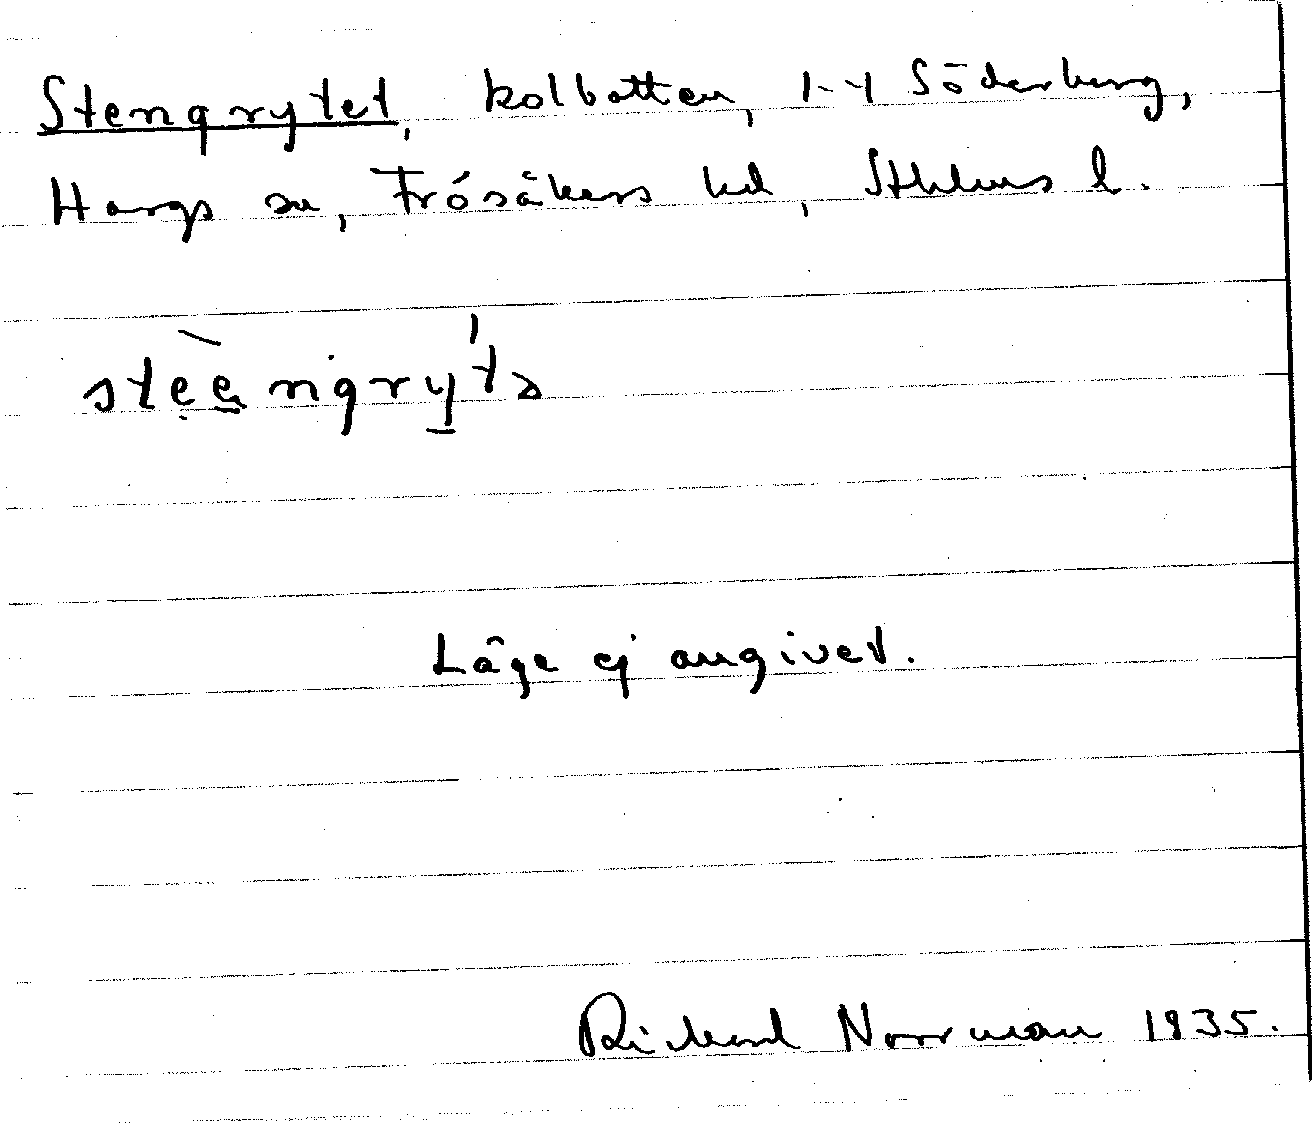 Stengrytet, kolbotten, 1-4 Söderberg,
Hargs sn, Frösåkers hd, Sthlms l.
stèẹngry̱'tə
Läge ej angivet.
Rickard Norrman 1935.